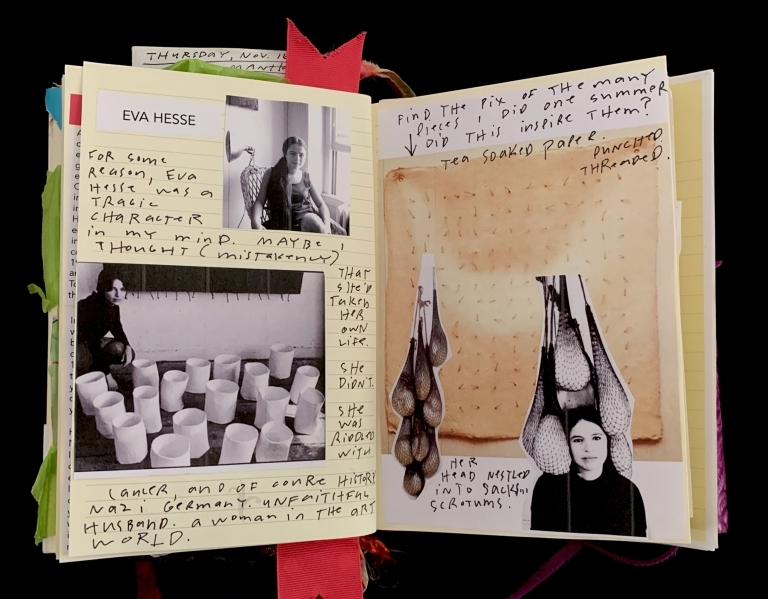 THURSDAY, NOV. 16
EVA HESSE
FOR SOME
REASON, EVA
HESSE WAS A
TRAGIC
CHARACTER
in my minD. MAYBE I
THOUGHT (misTAKENLY)
THAT
SHE'D
TAKEN
HER
OWN
LIFE.
SHE
DIDN'T.
SHE
WAS
RIDDLED
WITH
CANCER, AND OF COURE HISTORY
NAZI GERMANY. UNFAITHFUL
HUSBAND. A WOMAN IN THE ART
WORLD.
FIND THE PIX OF THE MANY
PIECES I DID ONE SUMMER
DID THIS INSPIRE THEM?
TEA SOAKED PAPER.
PUNCHED.
THREADED.
HER
HEAD NESTLED
INTO
SCROTUMS.